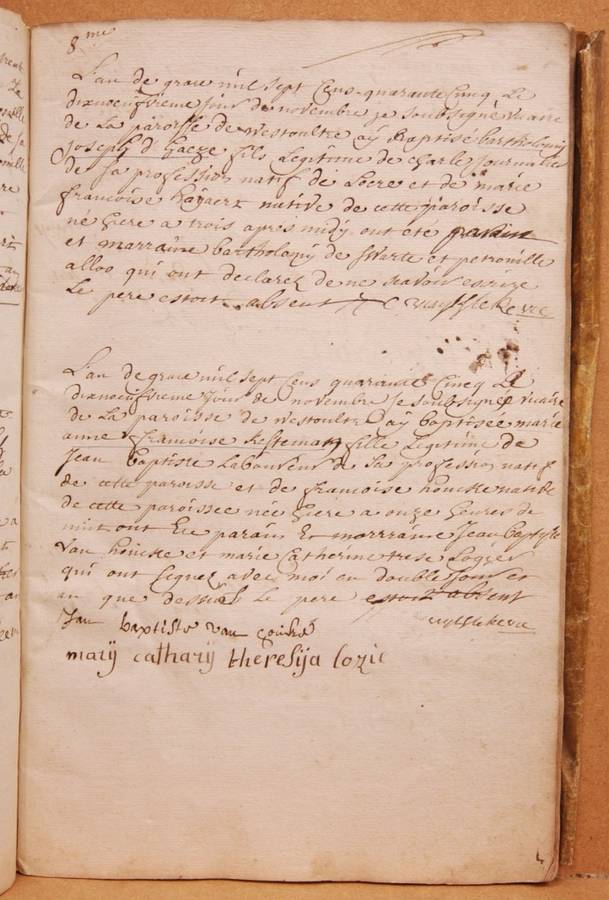 8 me
L'an de grace mil sept cens quarante cinq le
dixneufvieme jour de novembre je soubsigné vicaire
de la paroisse de westoultre aÿ Baptisé bartholomÿ
joseph d'haeze fils legitime de charle journalier
de sa profession natif de Locre et de marie
francoise native de cette paroisse
né hiere a trois apres midy ont eté parain
et marraine bartholomÿ de swarte et petronille
alloo qui ont declarez de ne scavoir escrire
Le pere estoit absent
L'an de grace mil sept cens quarante cinq Le
dixneufvieme jour de novembre Je soubsigné vicaire
de La paroisse de westoultre aÿ baptisée marie
anne francoise fille Legitime de
Jean Baptiste Laboureur de sa profession natif
de cette paroisse et de francoise houcke native
de cette paroissee née hiere a onze heures de
nuit ont Eté parain Et marraine Jean baptiste
van houcke et marie Catherine trese Logze
qui ont signez avec moi en double jour et
an que dessus Le pere estoit absent
Jan baptiste van
marij catharij theresija lozie